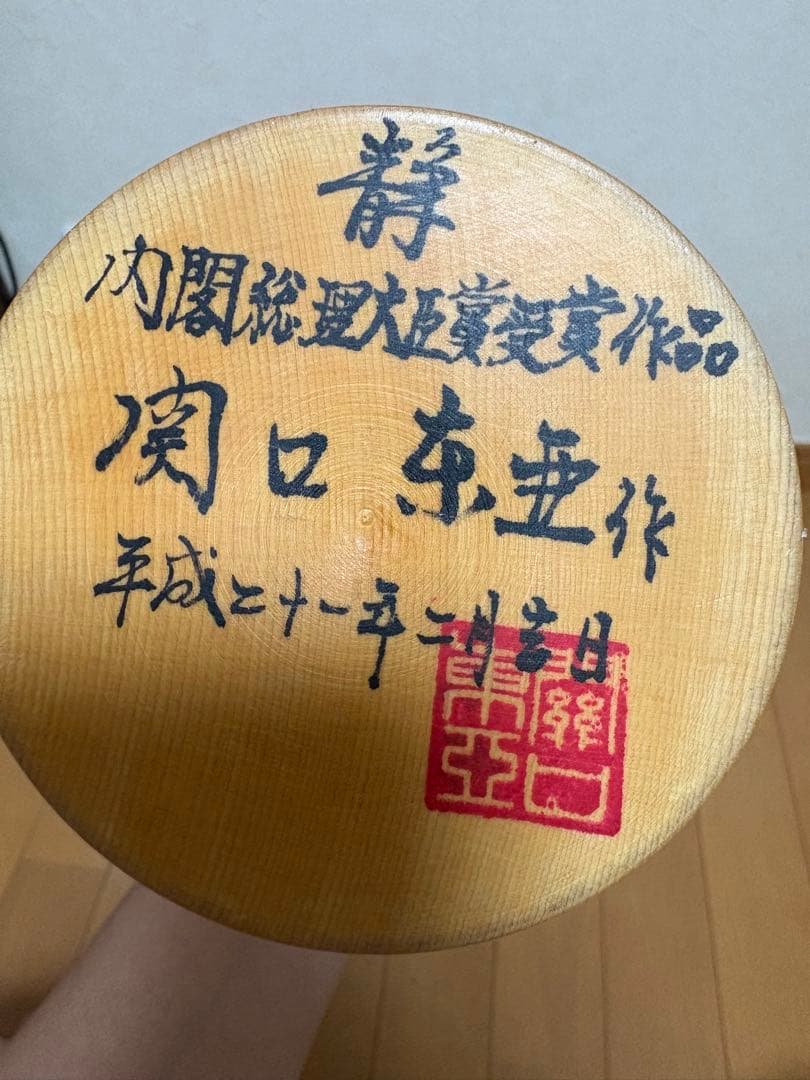 静
内閣総理大臣賞受賞作品
関口东亜作
平成二十一年二月吉日
關口
東亞